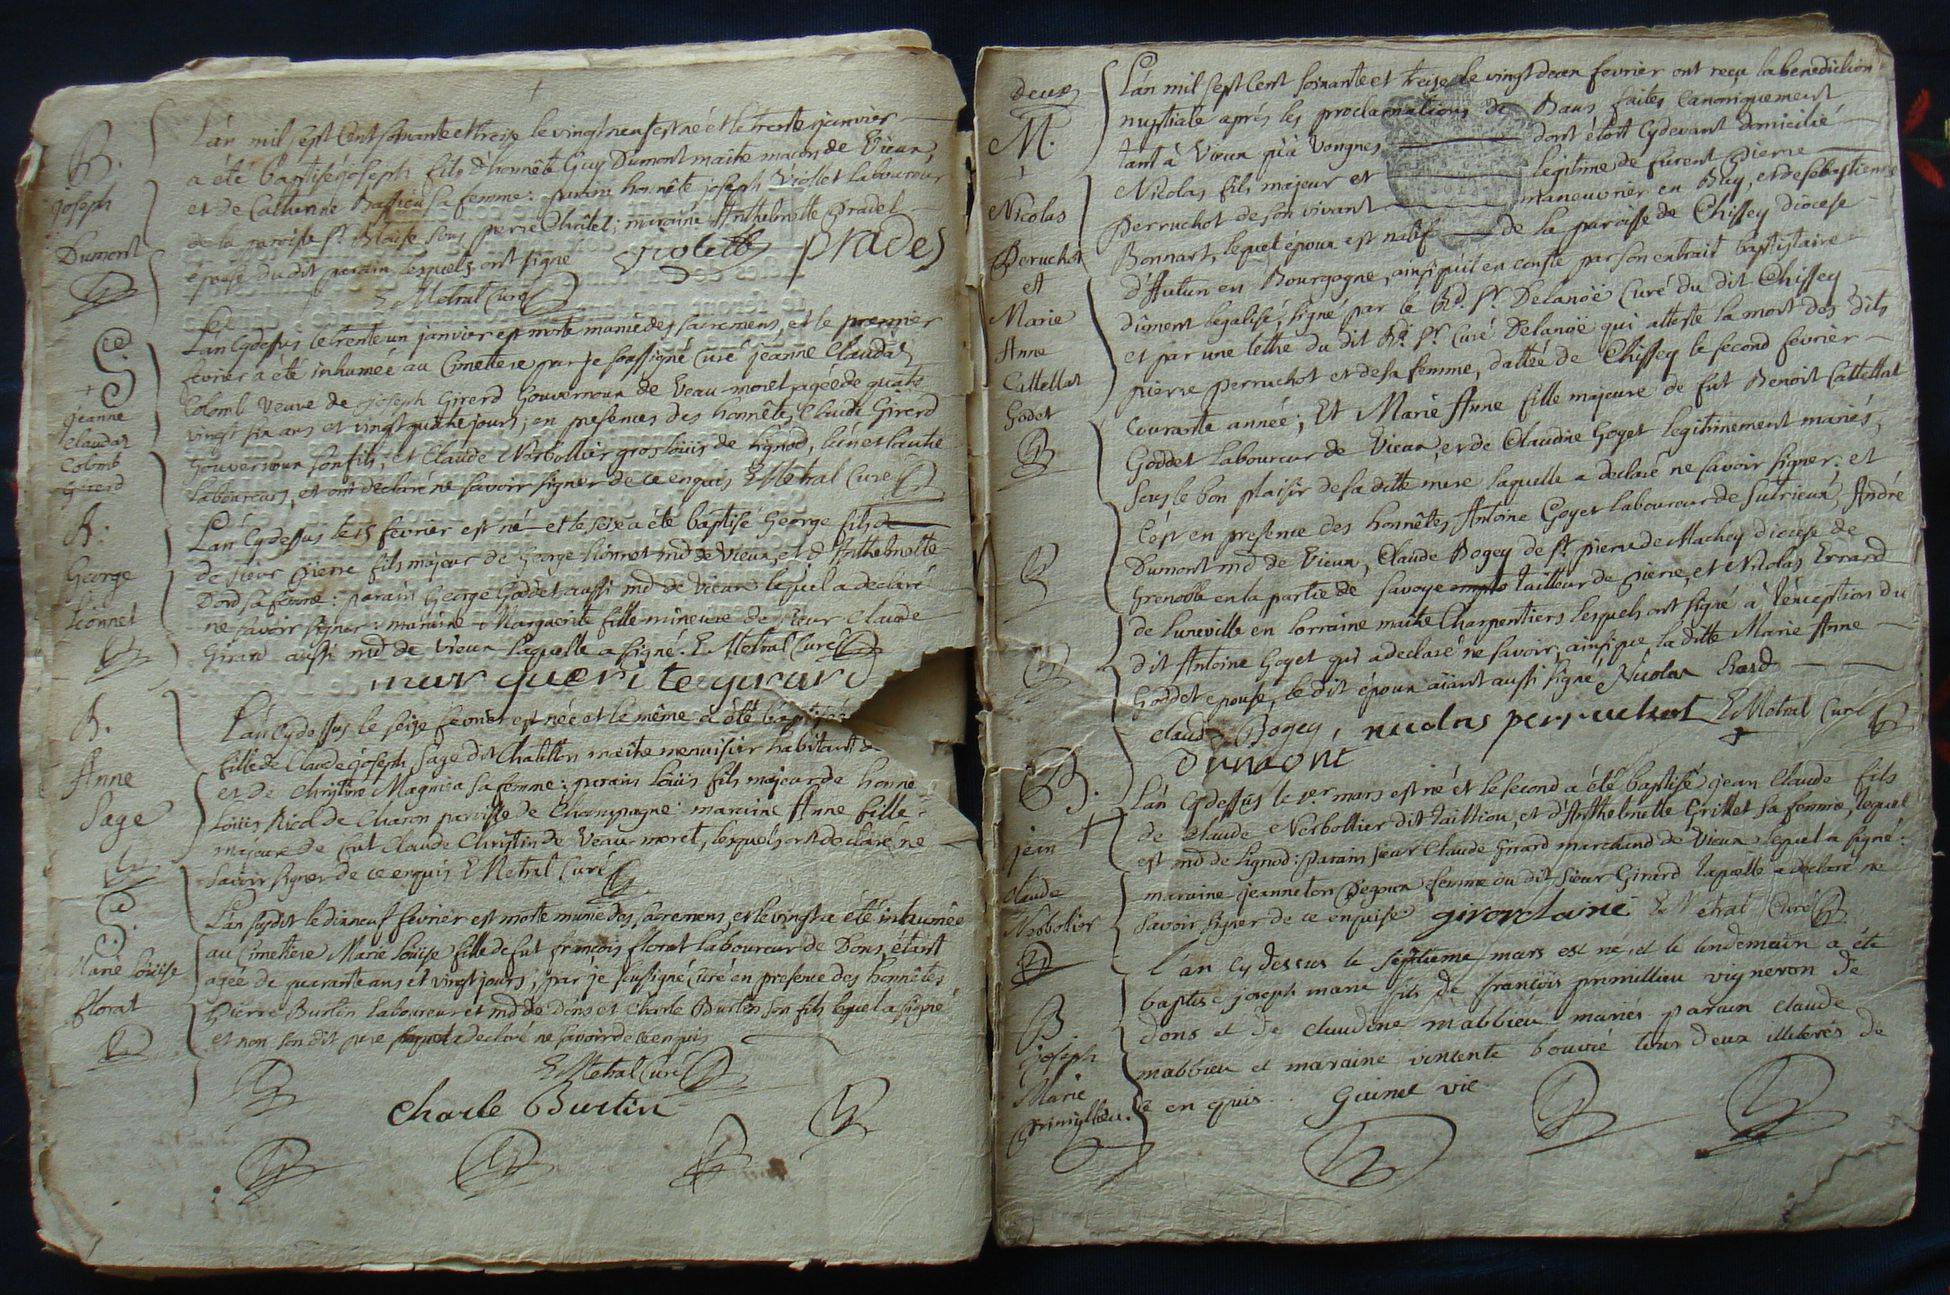 B.
joseph
Dumont
L'an mil sept Cent soixante et treize le vingt neuf est né et le trente janvier
a été baptisé joseph fils d'honnête Guy Dumont maitre maçon de Vieux,
et de Catherine Bassieu sa femme: parain honnête joseph Violet laboureur
de la paroisse St. Blaise sous pierre Chatel; maraine Anthelmette Pradel
epouse du dit parain lesquels ont signé
violette prades
E Metral Curé
S
jeanne
claudaz
Colomb
Girerd
L'an Cydessus le trente un janvier est morte munie des sacremens, et le premier
fevrier a été inhumée au Cimetiere par je soussigné Curé jeanne Claudaz
Colomb veuve de joseph Girerd Gouverneur de Veau-moret agée de quatre
vingt six ans et vingt quatre jours; en presences des honnêtes Claude Girerd
Gouverneur son fils, et Claude Nerbollier gros loüis de Lignod, l'un et l'autre
Laboureurs, et ont declaré ne savoir signer de ce enquis E Metral Curé
B.
George
Lionnet
L'an Cydessus le 15 fevrier est né et le seize a été baptisé George fils
de sieur pierre fils majeur de George Lionnet md de Vieux, et d'Anthelmette
Dord sa femme: parain George Goddet aussi md de Vieux lequel a declaré
ne savoir signer: maraine Marguerite fille mineure de sieur Claude
Girard aussi md de Vieux laquelle a signé. E Metral Curé
mar gueri te girard
B.
Anne
Sage
L'an Cydessus le seize fevrier est née et le même a été baptisée
fille de Claude joseph Sage dit Chatillon maitre menuisier habitant
et de Christine Magnien sa femme: parain loüis fils majeur de honne
Loüis Ricol de Charon paroisse de Champagne: maraine Anne fille
majeure de fut Claude Christin de Veau-moret, lesquels ont declaré ne
Savoir signer de ce enquis E Metral Curé
S.
Marie loüise
florat
L'an susdit le dixneuf fevrier est morte munie des sacremens, et le vingt a été inhumée
au Cimetiere Marie loüise fille de fut françois florat laboureur de Dons, étant
agée de quarante ans et vingt jours, par je soussigné Curé en presence des honnêtes
Pierre Burtin laboureur et md de Dons et Charle Burtin son fils lequel a signé
et non son dit pere lequel a declaré ne savoir de ce enquis
E Metral Curé
charle Burtin
deux
M.
Nicolas
Peruchot
et
Marie
Anne
Cattellat
Godet
L'an mil sept Cent soixante et treize le vingt deux fevrier ont reçu la benediction
nuptiale aprés les proclamations de Bans faites Canoniquement
tant à Vieux qu'à Vongnes dont étoit Cydevant domicilié
Nicolas fils majeur et legitime de furent Pierre
Perruchot de son vivant maneuvrier en Buy, et de sebastienne
Bonnart, lequel époux est natif de la paroisse de Chissey diocese
d'Autun en Bourgogne, ainsi qu'il en conste par son extrait baptistaire
dûment legalisé, signé par le Rd. Sr. Delanoë Curé du dit Chissey,
et par une lettre du dit Rd. Sr. Curé Delanoë qui atteste la mort des dits
pierre perruchot et de sa femme, dattée de Chissey le second fevrier
Courante année; Et Marie Anne fille majeure de fut Benoit Cattellat
Goddet laboureur de Vieux, et de Claudine Goyet legitimement mariés,
sous le bon plaisir de sa ditte mere laquelle a declaré ne savoir signer: et
C'est en presence des honnêtes Antoine Goyet laboureur de Sutrieux, André
Dumont md de Vieux, Claude Bogey de St. pierre de Machey diocese de
Grenoble en la partie de Savoye tailleur de pierre, et Nicolas Errard
de Luneville en Lorraine maitre Charpentiers lesquels ont signé à l'exception du
dit Antoine Goyet qui a declaré ne savoir, ainsi que la ditte Marie Anne
Goddet epouse, le dit époux aïant aussi signé Nicolas Erard
claude Bogey, nicolas perruchot E Metral Curé
Dumont
B.
jean
claude
Nerbolier
L'an Cydessus le 1er. mars est né et le second a été baptisé jean Claude fils
de Claude Nerbollier dit taillion, et d'Anthelmette Grillet sa femme, lequel
est md de Lignod: parain sieur Claude Girard marchand de Vieux lequel a signé:
maraine jeanneton Pegoux femme du dit sieur Girard laquelle a declaré ne
savoir signer de ce enquise girard aine E Metral Curé
B.
joseph
Marie
primillieu.
l'an cy dessus le septieme mars est né, et le lendemain a été
baptisé joseph marie fils de françois primillieu vigneron de
dons et de claudine mabbieu mariés parain claude
mabbieu et maraine vincente bouvié tous deux illiterés de
ce en quis. Guinet vic